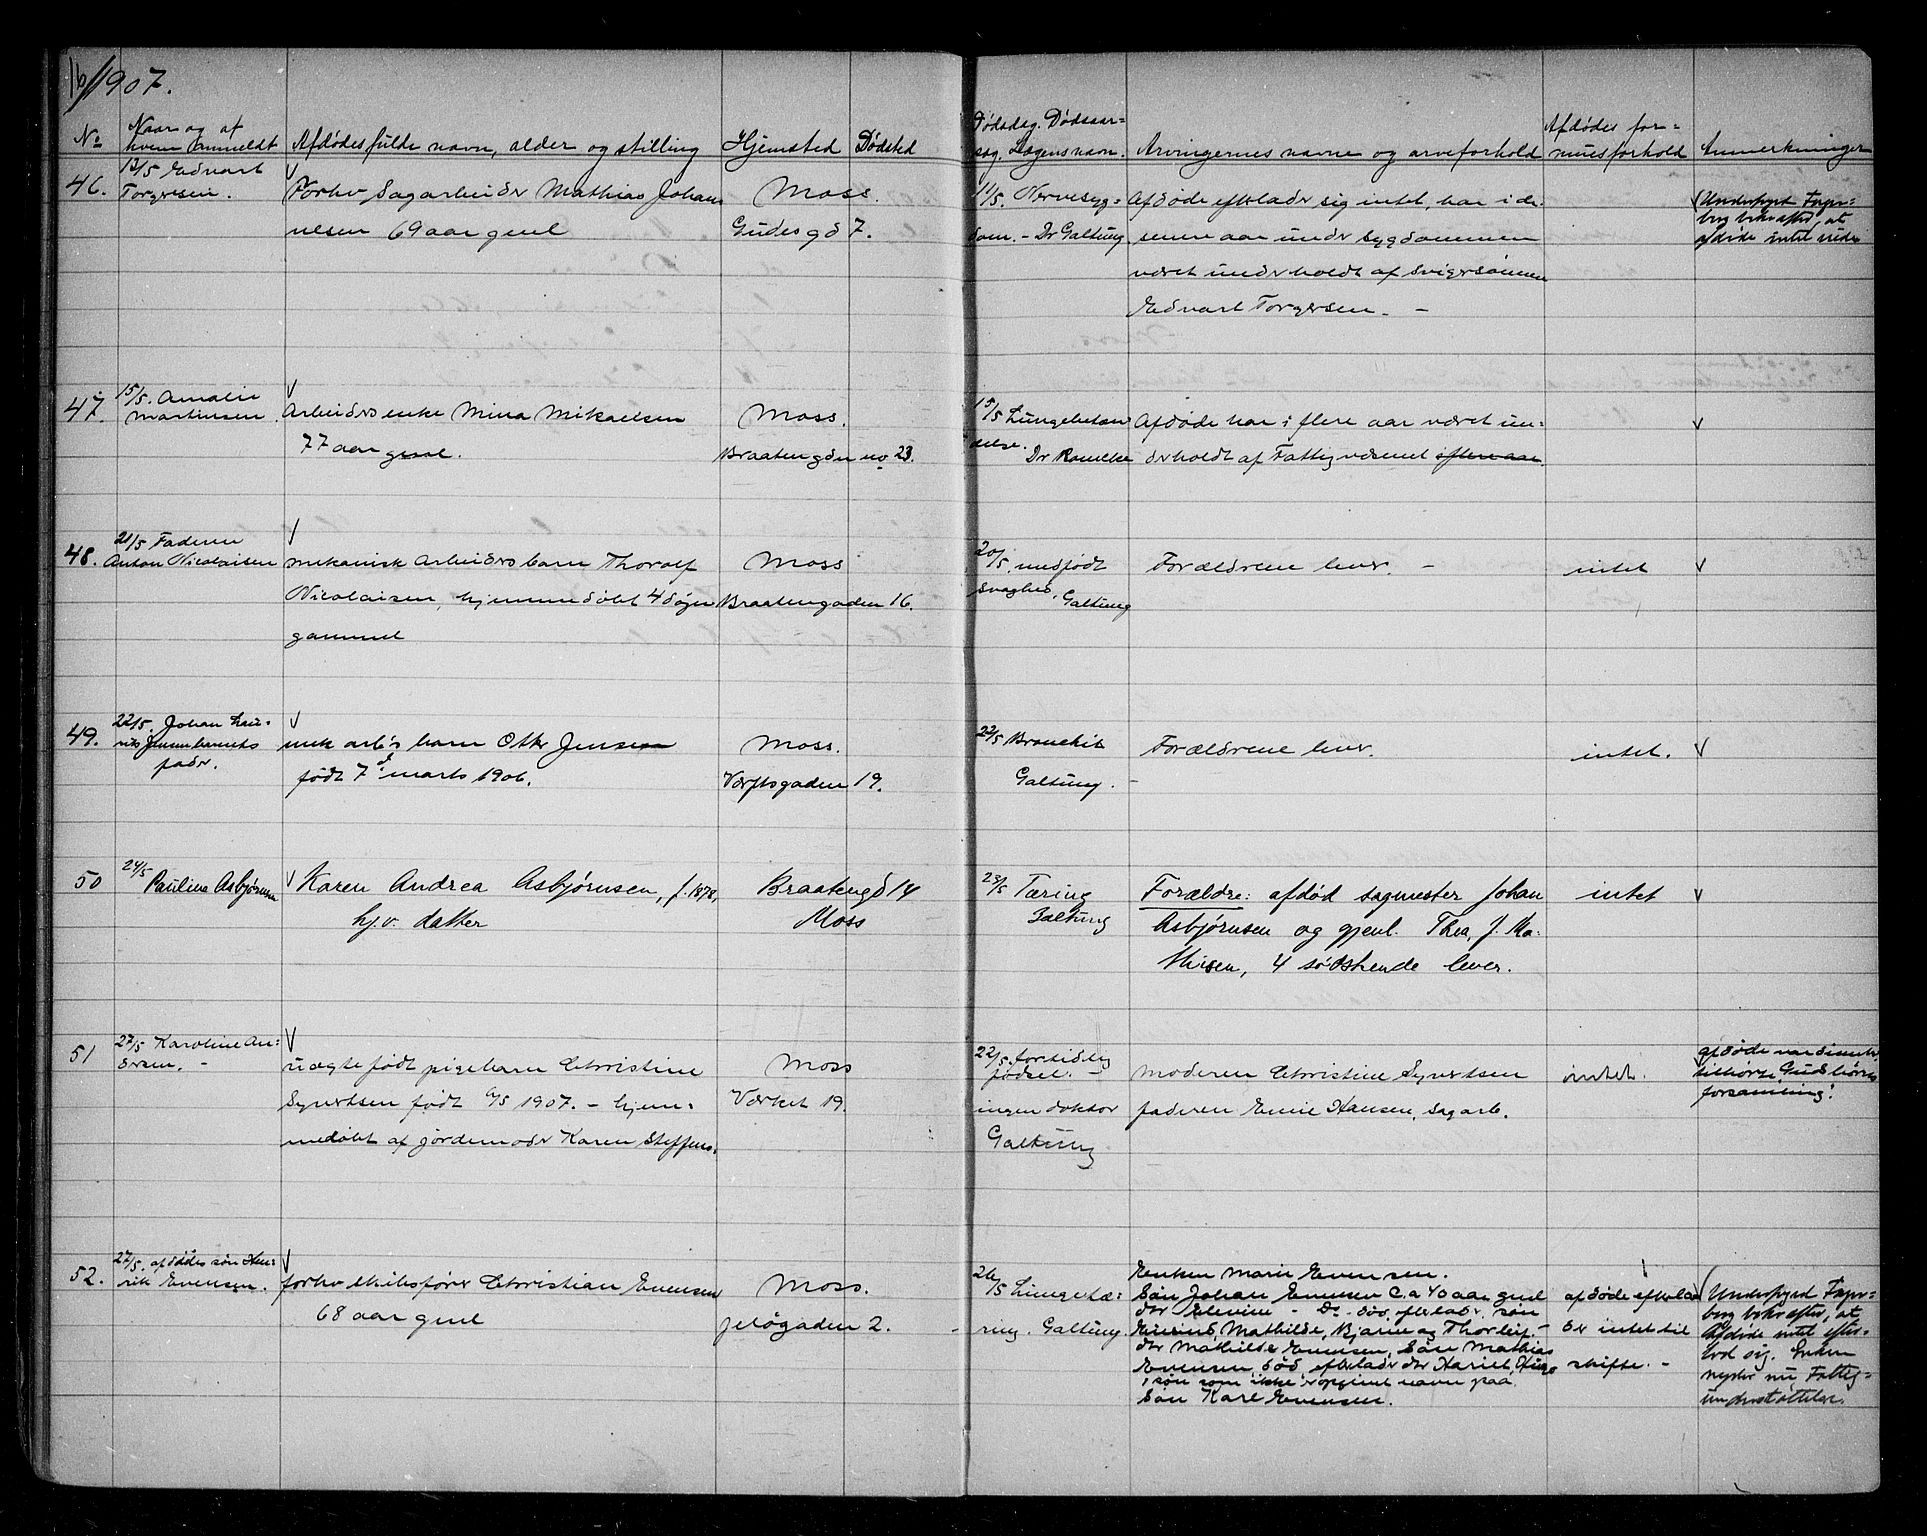 16/1907.
No
Naar og af
hvem anmeldt
Afdødes fulde navn, alder og stilling
Hjemsted
Dødsted
Dødsdag. Dødsaar=
sag. Lægens navn.
Arvingernes navne og arveforhold
Afdødes for=
muesforhold
Anmerkninger
46.
12/5 Edvart
Torgersen.
Forhv Sagarbeider Mathias Johan
nesen 69 aar gml
Moss.
Gudesgd 7.
11/5. Nervesyg=
dom. - Dr Galtung
Afdøde efterlader sig intet, har i de
senere aar under sygdommen
været underholdt af svigersønnen
Edvart Torgersen. -
Undersøgt Fapr=
berg bekræfted, at
afdøde intet eiede
47.
15/5. Amalie
Martinsen.
Arbeiders enke Mina Mikaelsen
77 aar gml.
Moss.
Braatengden no 23.
15/5 Lungebetæn
delse.
Dr Ramcke
Afdøde har i flere aar været un=
derholdt af Fattigvæsenet i flere aar.
48.
21/5 Faderen
Anton Nicolaisen
mekanisk arbeidersbarn Thoralf
Nicolaisen, hjemmedøbt 4 døgn
gammel
Moss
Braatengaden 16.
20/5. medfødt
svaghed, Galtung
Forældrene lever. -
intet
49.
22/5. Johan Hen=
riks Jensen barnets
fader.
mek arbs barn Otto Jensen
født 7d marts 1906.
Moss.
Værftsgaden 19.
22/5 Bronchit
Galtung. -
Forældrene lever.
intet.
50
24/5
Pauline Asbjørnsen
Karen Andrea Asbjørnsen, f. 1878,
hj.v. datter
Braatengd 14
Moss
23/5 Tæring
Galtung
Forældre: afdød sagmester Johan
Asbjørnsen og gjenl. Thea, f. Ma=
thisen, 4 sødskende lever.
intet
51
27/5 Karoline An=
dersen. -
uægte født pigebarn Christine
Syvertsen født 6/5 1907. - hjem=
medøbt af jordemoder Karen Steffens.
Moss
Værket 19.
22/5. fortidlig
fødsel. -
ingen doktor
Galtung
moderen Christine Syvertsen
faderen Emil Hansen, sagarb.
intet.
afdøde var dissenter
tilhørte Gudstjenes
forsamling!
52.
27/5. afdødes søn Hen=
rik Evensen.
forhv skibsfører Christian Evensen
68 aar gml
Moss.
Jeløgaden 2.
26/5 Lungetæ=
ring. Galtung
Enken Marie Evensen.
Søn Johan Evensen c.a 40 aar gml
dtr Elevine - Do - død, efterlader søn
Eivind, Mathilde, Bjarne og Thorleif. -
dtr Mathilde Evensen, Søn Mathias
Evensen død efterlader dtr Hariet Hugo
, søn som ikke er opgivet navn paa.
Søn Karl Evensen.
afdøde efterlad
er intet til
skifte. -
Undersøgt Fapr=
berg bekræfted, at
Afdøde intet efter=
lod sig. Enken
nyder nu Fattig=
understøttelse.